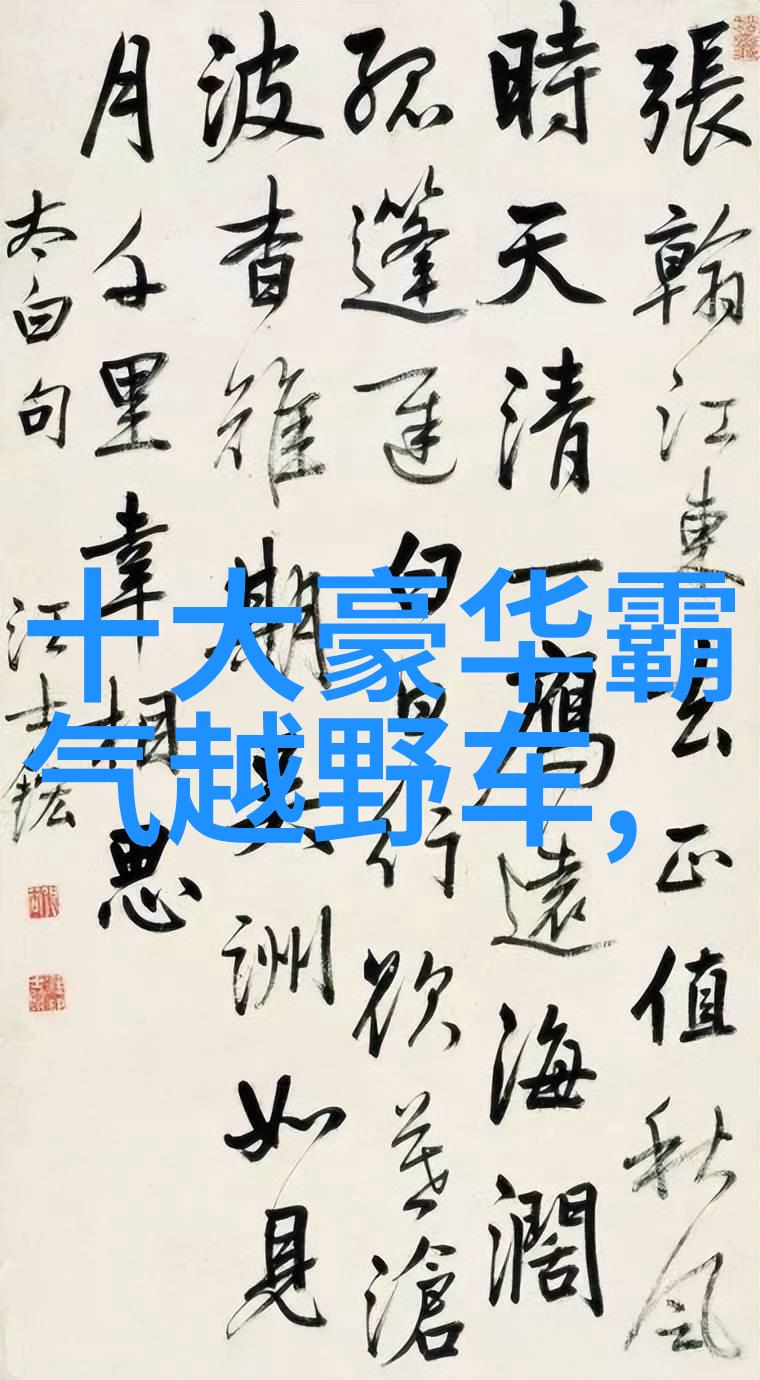 張翰江東去正值秋風
時天清一鴈遠海濶
孤篷遲白日行欲暮滄
波杳難期吳洲如見
月千里幸相思
太白句 汪士鋐
十大豪华霸
气越野车,